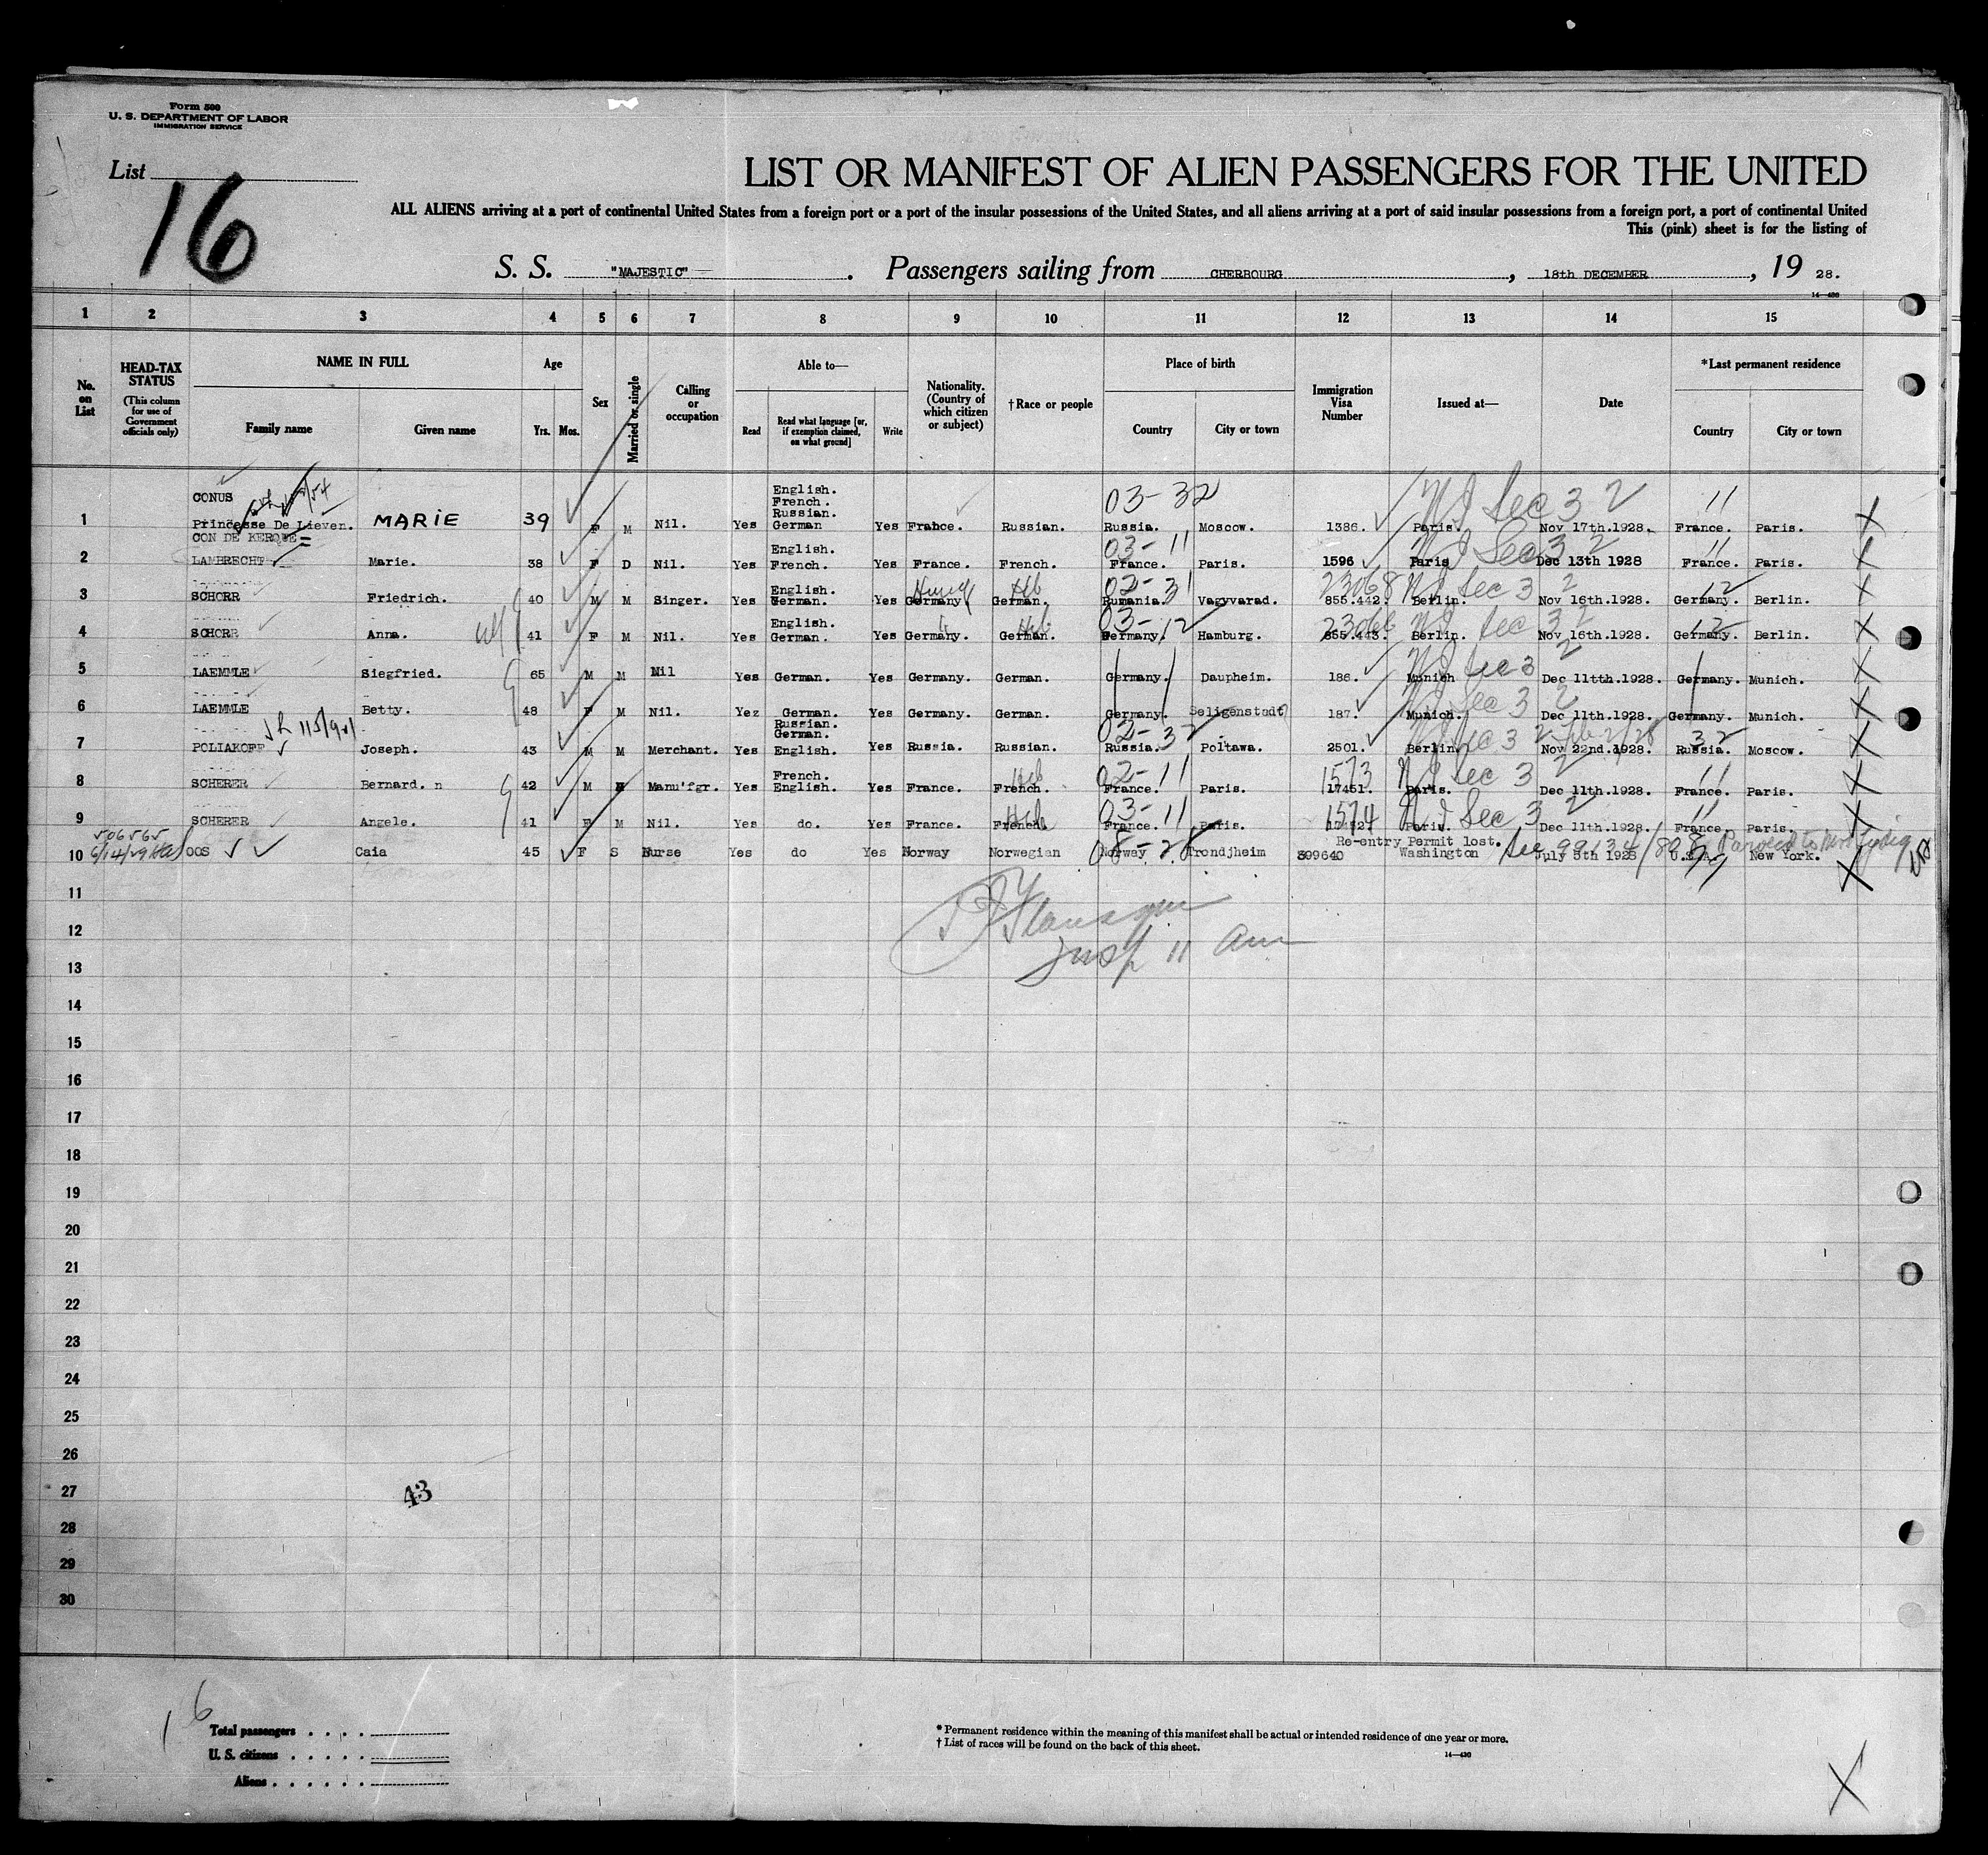 Form 500
U. S. DEPARTMENT OF LABOR
IMMIGRATION SERVICE
List
16
LIST OR MANIFEST OF ALIEN PASSENGERS FOR THE UNITED
ALL ALIENS arriving at a port of continental United States from a foreign port or a port of the insular possessions of the United States, and all aliens arriving at a port of said insular possessions from a foreign port, a port of continental United
This (pink) sheet is for the listing of
S. S. "MAJESTIC" . Passengers sailing from CHERBOURG , 18th DECEMBER , 19 28.
14—430
1 2 3 4 5 6 7 8 9 10 11 12 13 14 15
No. on List
HEAD-TAX STATUS
(This column for use of Government officials only)
NAME IN FULL
Family name Given name
Age
Yrs. Mos.
Sex
Married or single
Calling or occupation
Able to—
Read
Read what language [or, if exemption claimed, on what ground]
Write
Nationality. (Country of which citizen or subject)
†Race or people
Place of birth
Country City or town
Immigration Visa Number
Issued at—
Date
*Last permanent residence
Country City or town
CONUS English. 03-32 NJ Sec 3 2 11
French.
Russian.
1 Princesse De Lieven. MARIE 39 F M Nil. Yes German Yes France. Russian. Russia. Moscow. 1386. Paris. Nov 17th.1928. France. Paris. X
CON DE KERQUE= English. 03-11 Sec 3 2 11
2 LAMBRECHT Marie. 38 F D Nil. Yes French. Yes France. French. France. Paris. 1596 Paris Dec 13th 1928 France. Paris. X
English. Hung Heb 02-31 23068 Sec 3 2 12
3 SCHORR Friedrich. 40 M M Singer. Yes German. Yes Germany German. Rumania. Vagyvarad. 855.442. Berlin. Nov 16th.1928. Germany. Berlin. X
English. " Heb 03-12 Sec 3 2 12
4 SCHORR Anna. 41 F M Nil. Yes German. Yes Germany. German. Germany. Hamburg. 855.443. Berlin. Nov 16th.1928. Germany. Berlin. X
Sec 3 2
5 LAEMMLE Siegfried. 65 M M Nil Yes German. Yes Germany. German. Germany. Daupheim. 186. Munich Dec 11tth.1928. Germany. Munich. X
Sec 3 2
6 LAEMMLE Betty. 48 F M Nil. Yez German. Yes Germany. German. Germany. Seligenstadt 187. Munich. Dec 11th.1928. Germany. Munich. X
Russian
German. 02-32 Sec 3 2 32
7 POLIAKOFF Joseph. 43 M M Merchant. Yes English. Yes Russia. Russian. Russia. Poltawa. 2501. Berlin. Nov 22nd.1928. Russia. Moscow. X
French. Heb 02-11 1573 Sec 3 2 11
8 SCHERER Bernard. n 42 M M Manu'fgr. Yes English. Yes France. French. France. Paris. 17451. Paris. Dec 11th.1928. France. Paris. X
Heb 03-11 1574 Sec 3 2 11
9 SCHERER Angele. 41 F M Nil. Yes do. Yes France. French. France. Paris. Paris. Dec 11th.1928. France. Paris. X
506565 08-28 Re-entry Permit lost.
10 6/14/29 OOS Caia 45 F S Nurse Yes do Yes Norway Norwegian Norway Trondjheim 899640 Washington July 5th 1928 U.S.A. New York. X
11
12
Insp 11 am
13
14
15
16
17
18
19
20
21
22
23
24
25
26
27
43
28
29
30
16
Total passengers
U. S. citizens
Aliens
* Permanent residence within the meaning of this manifest shall be actual or intended residence of one year or more.
† List of races will be found on the back of this sheet.
14—430
X